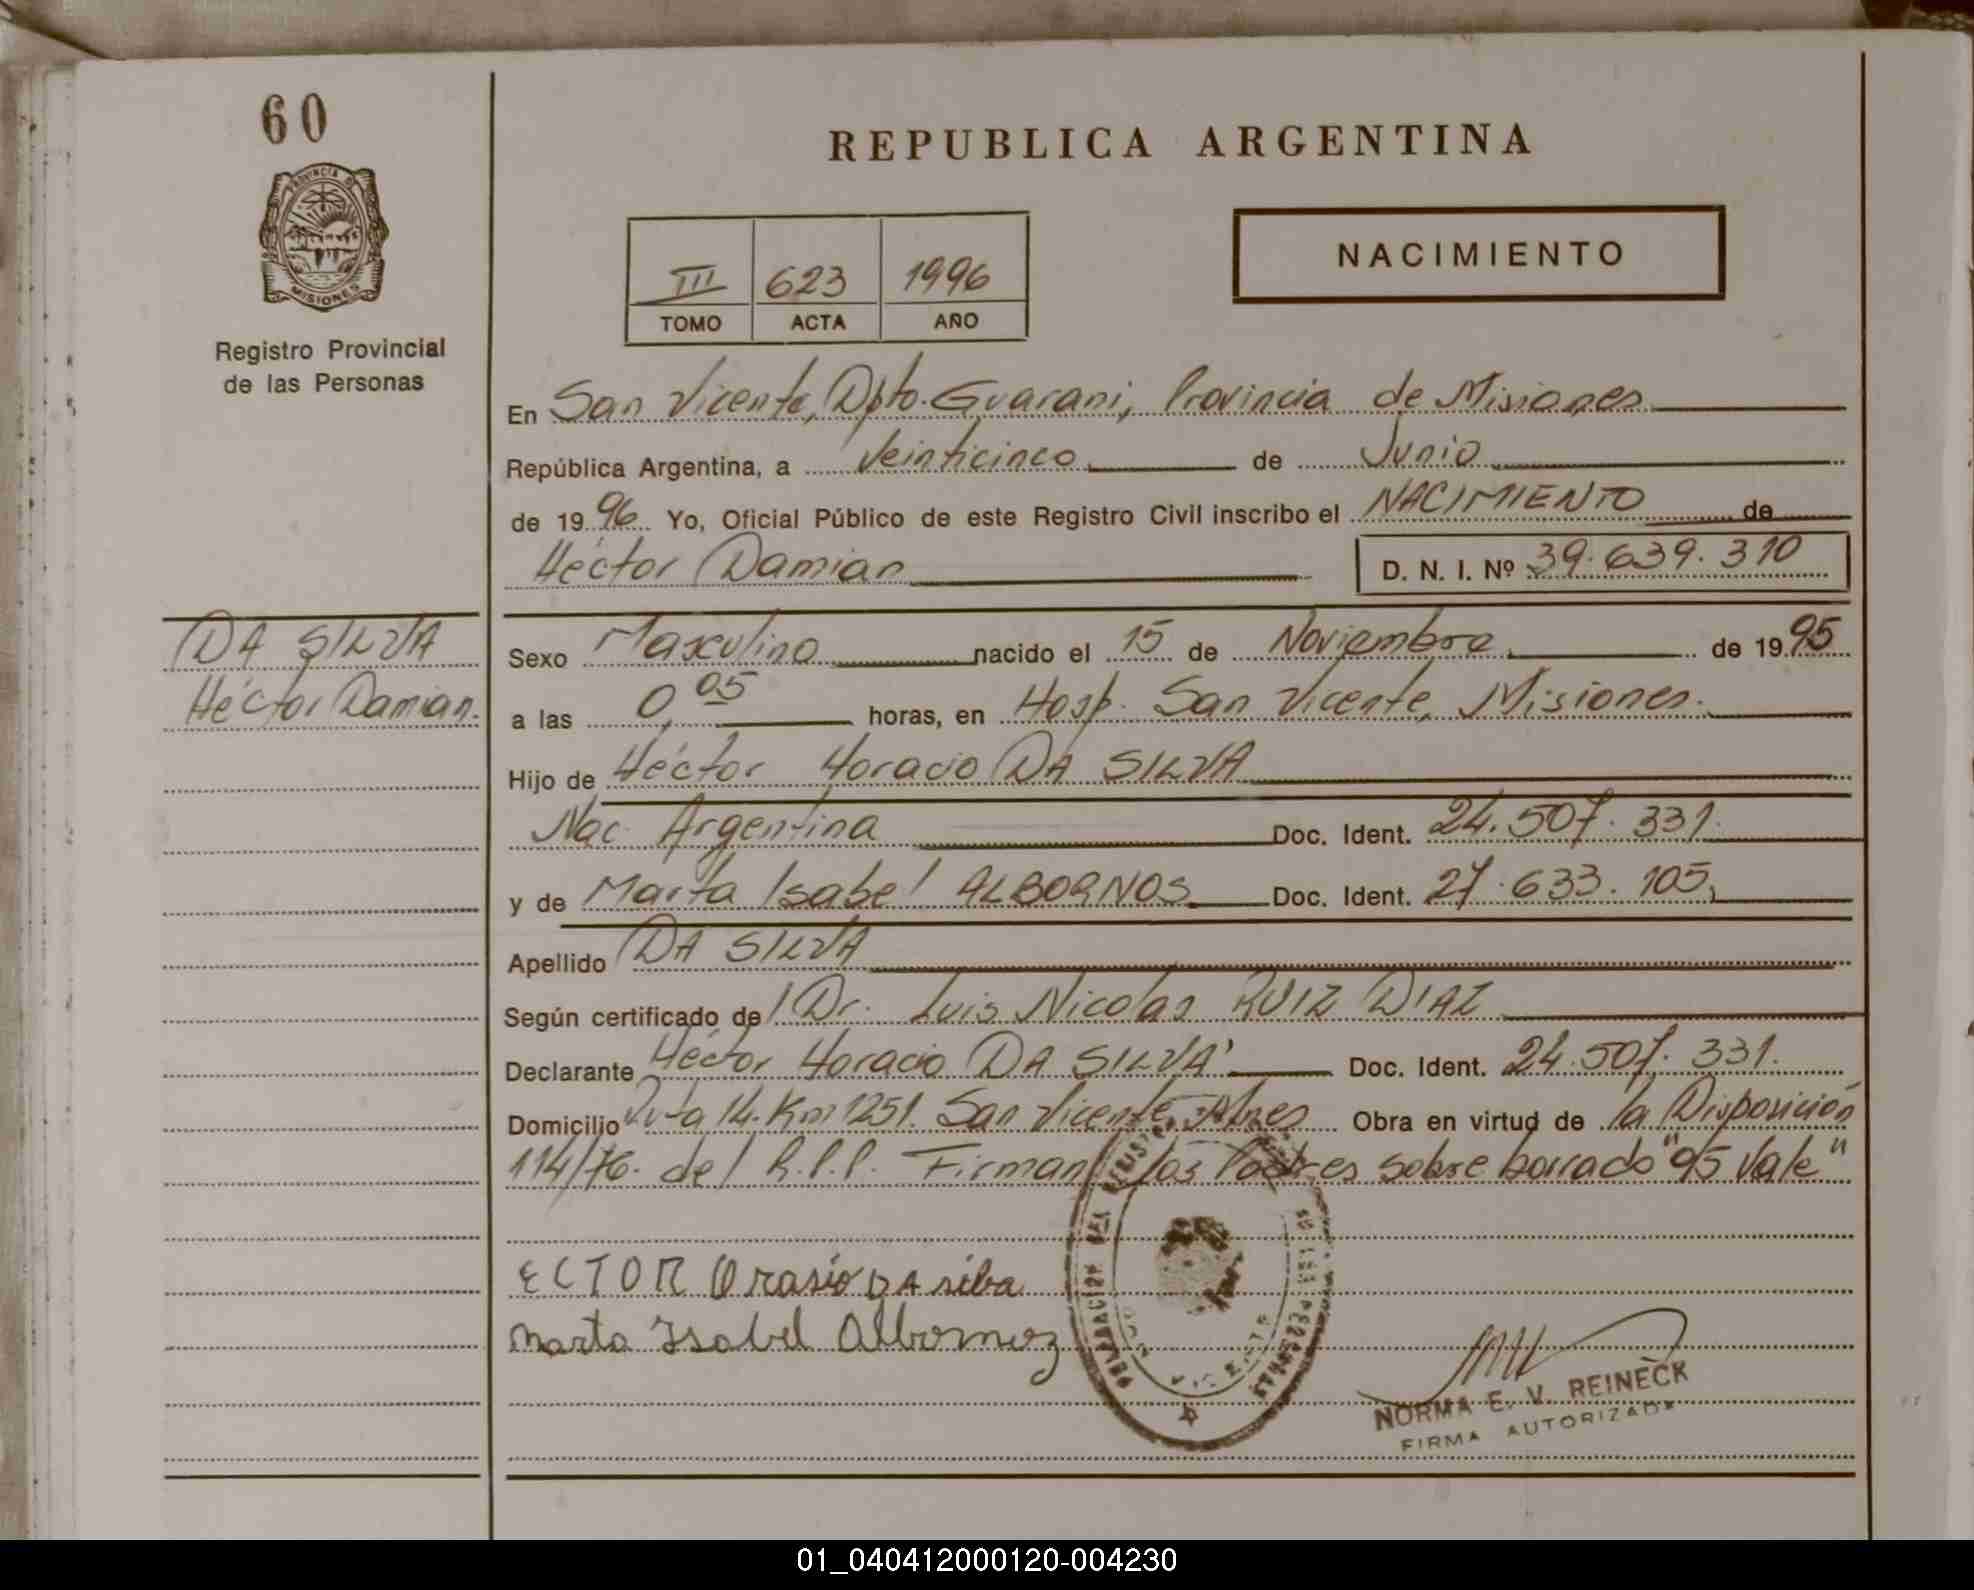 60
PROVINCIA DE
MISIONES
Registro Provincial
de las Personas
REPUBLICA ARGENTINA
III 623 1996
TOMO ACTA AÑO
NACIMIENTO
En San Vicente, Dpto. Guarani, Provincia de Misiones
República Argentina, a Veinticinco de Junio
de 1996 Yo, Oficial Público de este Registro Civil inscribo el NACIMIENTO de
Héctor Damian D. N. I. Nº 39.639.310
DA SILVA
Héctor Damian.
Sexo Masculino nacido el 15 de Noviembre de 1995
a las 0,05 horas, en Hosp. San Vicente, Misiones.
Hijo de Héctor Horacio DA SILVA
Nac. Argentina Doc. Ident. 24.507.331.
y de Marta Isabel ALBORNOS Doc. Ident. 27.633.105
Apellido DA SILVA
Según certificado del Dr. Luis Nicolas RUIZ DIAZ
Declarante Héctor Horacio DA SILVA Doc. Ident. 24.507.331.
Domicilio Ruta 14. Km 1251. San Vicente, Mnes Obra en virtud de la Disposición
114/76. del R.P.P. Firman los Padres sobre borrado "95 Vale"
ECTOR Orasio DA silba
Marta Isabel Albornoz
NORMA E. V. REINECK
FIRMA AUTORIZADA
01_040412000120-004230